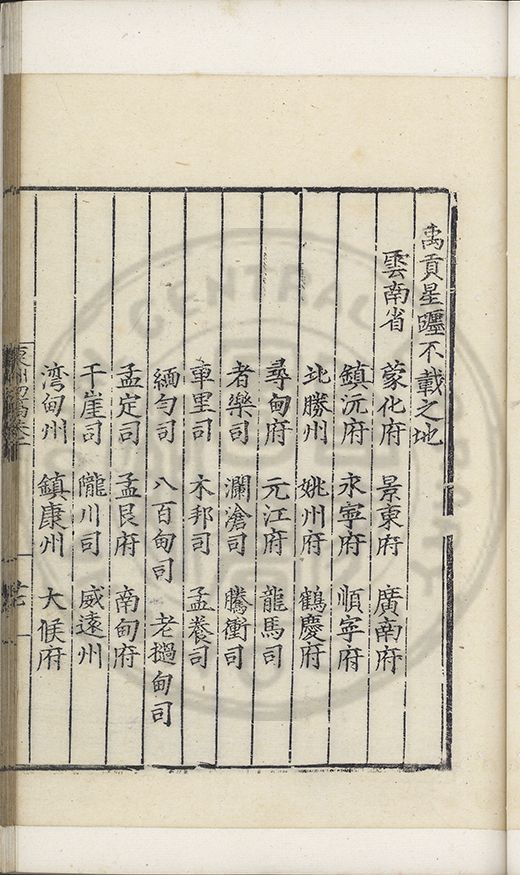 禹貢星躔不載之地
雲南省 蒙化府 景東府 廣南府
鎮沅府 永寧府 順寧府
北勝州 姚州府 鶴慶府
尋甸府 元江府 龍馬司
者樂司 瀾滄司 騰衝司
車里司 木邦司 孟養司
緬勻司 八百甸司 老撾甸司
孟定司 孟艮府 南甸府
干崖司 隴川司 威遠州
湾甸州 鎮康州 大候府
CENTRAL